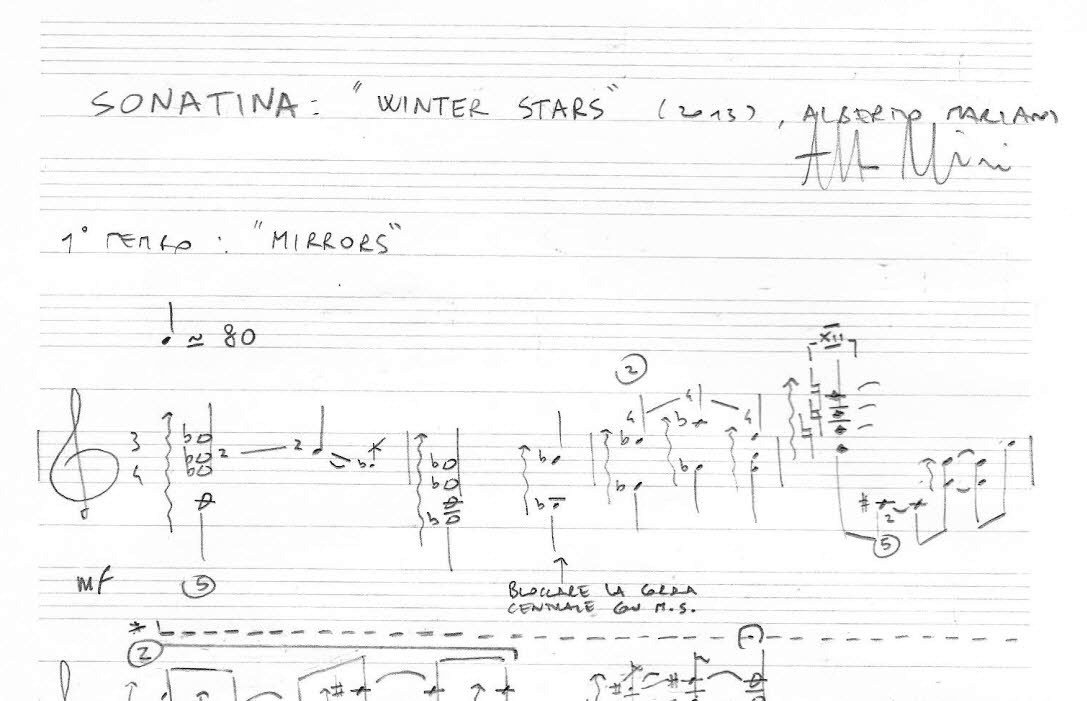 SONATINA: "WINTER STARS" (2013), ALBERTO MARIANI
1° TEMPO: "MIRRORS"
≃ 80
2
XII
4 4 4
3
4
2 2
2
5
mf
5
BLOCCARE LA CORDA
CENTRALE CON M.S.
*
2